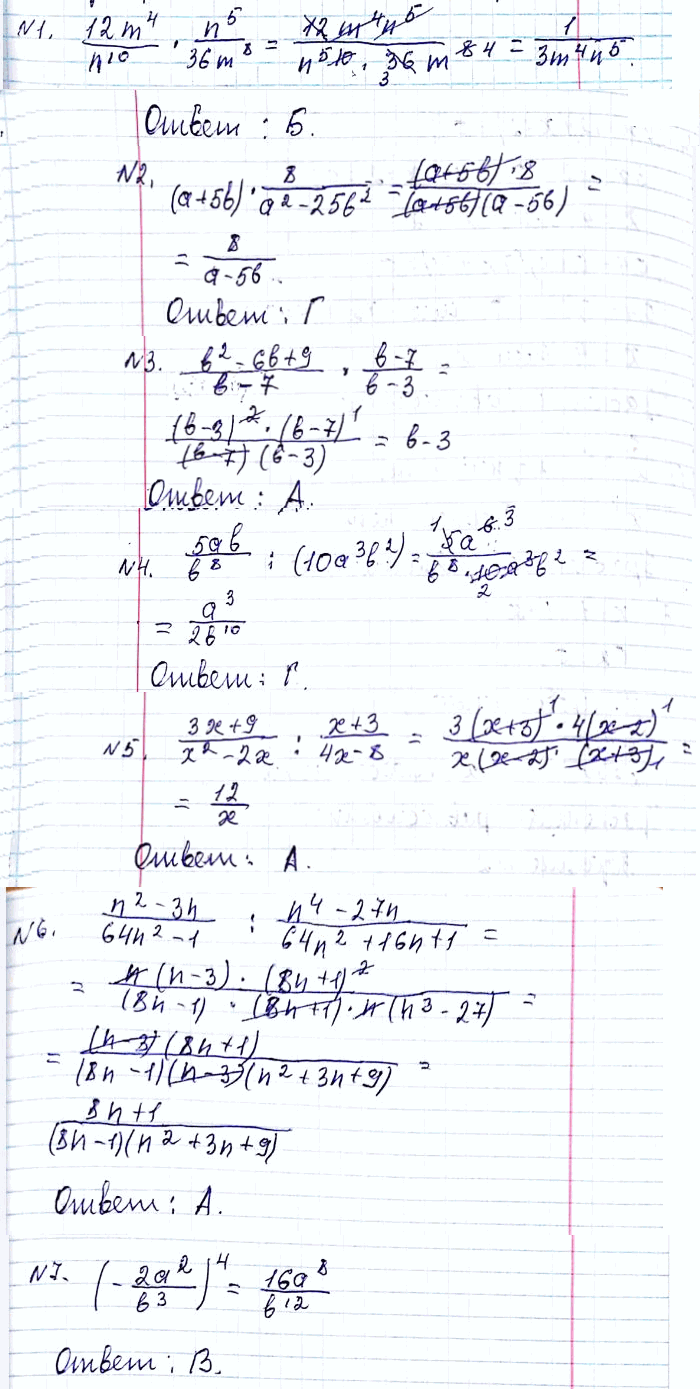 N1. 12m⁴/n¹⁰ · n⁵/36m⁸ = 12m⁴n⁵/n⁵ 10 · 3 36 m 8 4 = 1/3m⁴n⁵.
Ответ : Б.
N2. (a+5b) · 8/a²-25b² = (a+5b)·8/(a+5b)(a-5b) =
= 8/a-5b.
Ответ : Г
N3. b²-6b+9/b-7 · b-7/b-3 =
(b-3)²·(b-7)¹/(b-7)(b-3) = b-3
Ответ : А.
N4. 5ab/b⁸ : (10a³b²) = 1 5a 6 3/b⁸·10 2 a³b² =
= a³/2b¹⁰
Ответ : Г.
N5. 3x+9/x²-2x : x+3/4x-8 = 3(x+3)¹·4(x-2)¹/x(x-2)·(x+3)₁ =
= 12/x
Ответ : А.
N6. n²-3n/64n²-1 : n⁴-27n/64n²+16n+1 =
= n(n-3)·(8n+1)²/(8n-1)·(8n+1)·n(n³-27) =
= (n-3)(8n+1)/(8n-1)(n-3)(n²+3n+9) =
8n+1/(8n-1)(n²+3n+9)
Ответ : А.
N7. (-2a²/b³)⁴ = 16a⁸/b¹²
Ответ : В.